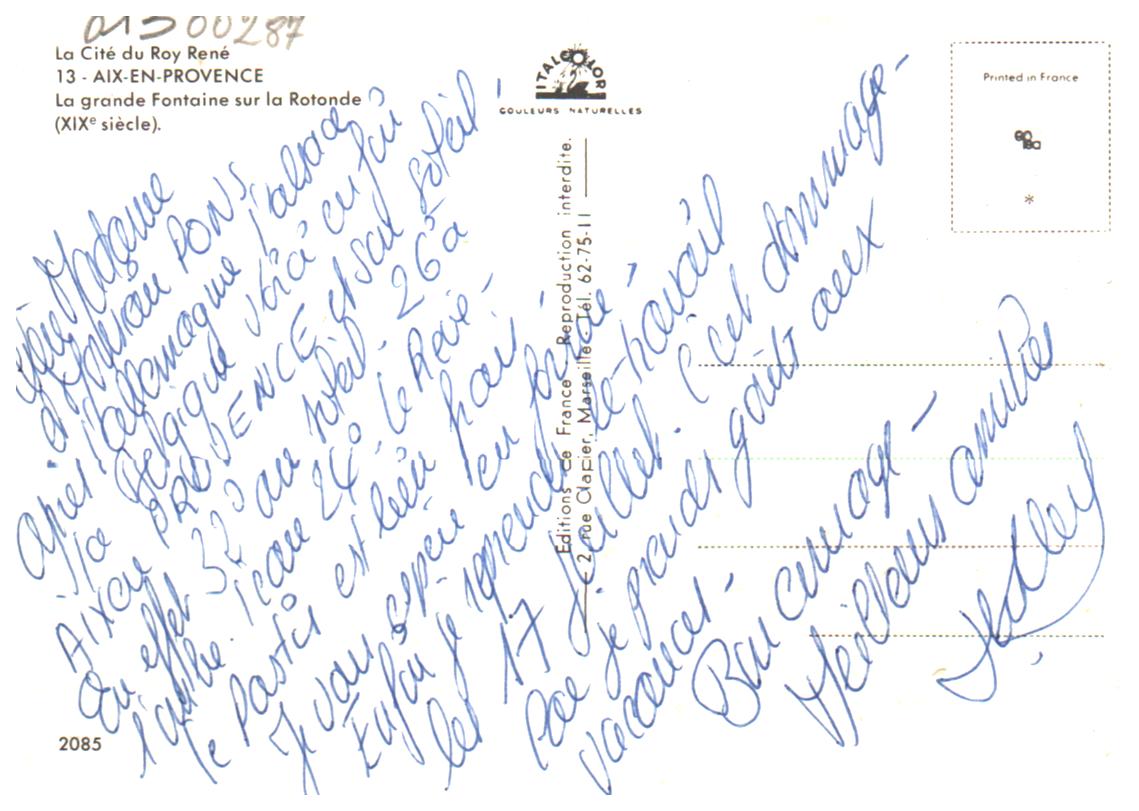 01500287
La Cité du Roy René
13 - AIX-EN-PROVENCE
La grande Fontaine sur la Rotonde
(XIXe siècle).
ITALCOLOR
COULEURS NATURELLES
Printed in France
*
Editions de France Reproduction interdite.
2, rue Clapier, Marseille-Tél. 62-75-11
Chère Madame
et Monsieur PONS,
après l'allemagne, l'alsace,
la Belgique voici enfin
Aix en PROVENCE et son soleil !
En effet 32° au soleil. 26° à
l'ombre. l'eau 24° le Rêve -
le Pastis est bien frais.
Je vous espère en forme !
Enfin je reprendrai le travail
le 17 Juillet. C'est dommage -
Car je prends goût aux
vacances -
Bon courage -
Meilleures amitiés
2085